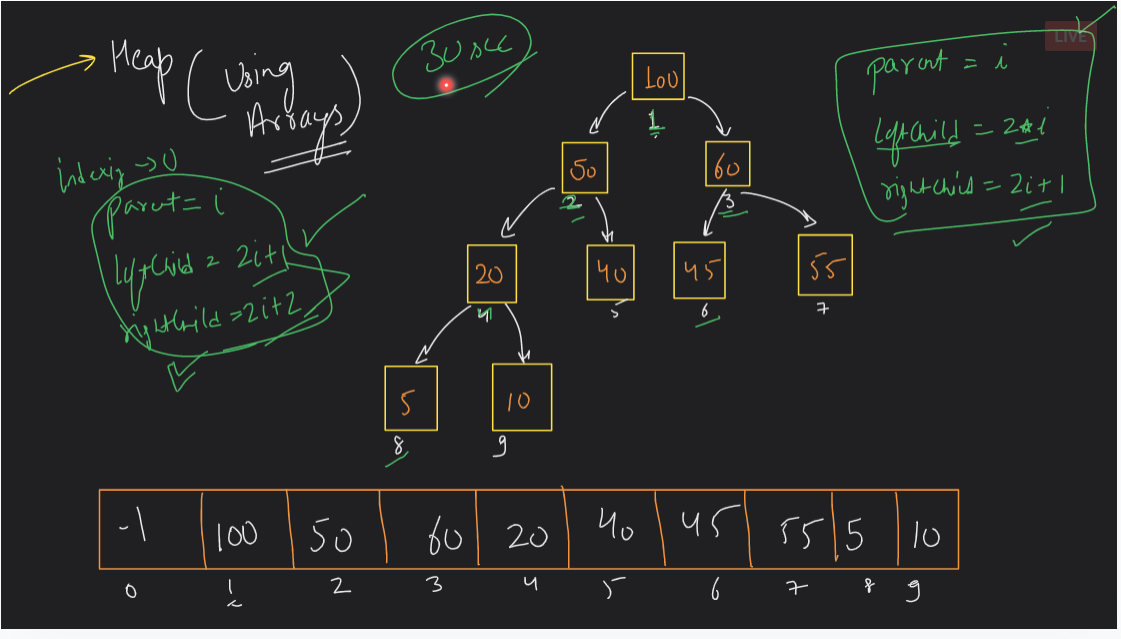 Heap (Using Arrays)
30 sec
LIVE
parent = i
leftchild = 2*i
rightchild = 2i+1
indexig → 0
parent = i
leftchild = 2i+1
rightchild = 2i+2
100
1
50
60
2
3
20
40
45
55
4
5
6
7
5
10
8
9
-1 100 50 60 20 40 45 55 5 10
0 1 2 3 4 5 6 7 8 9